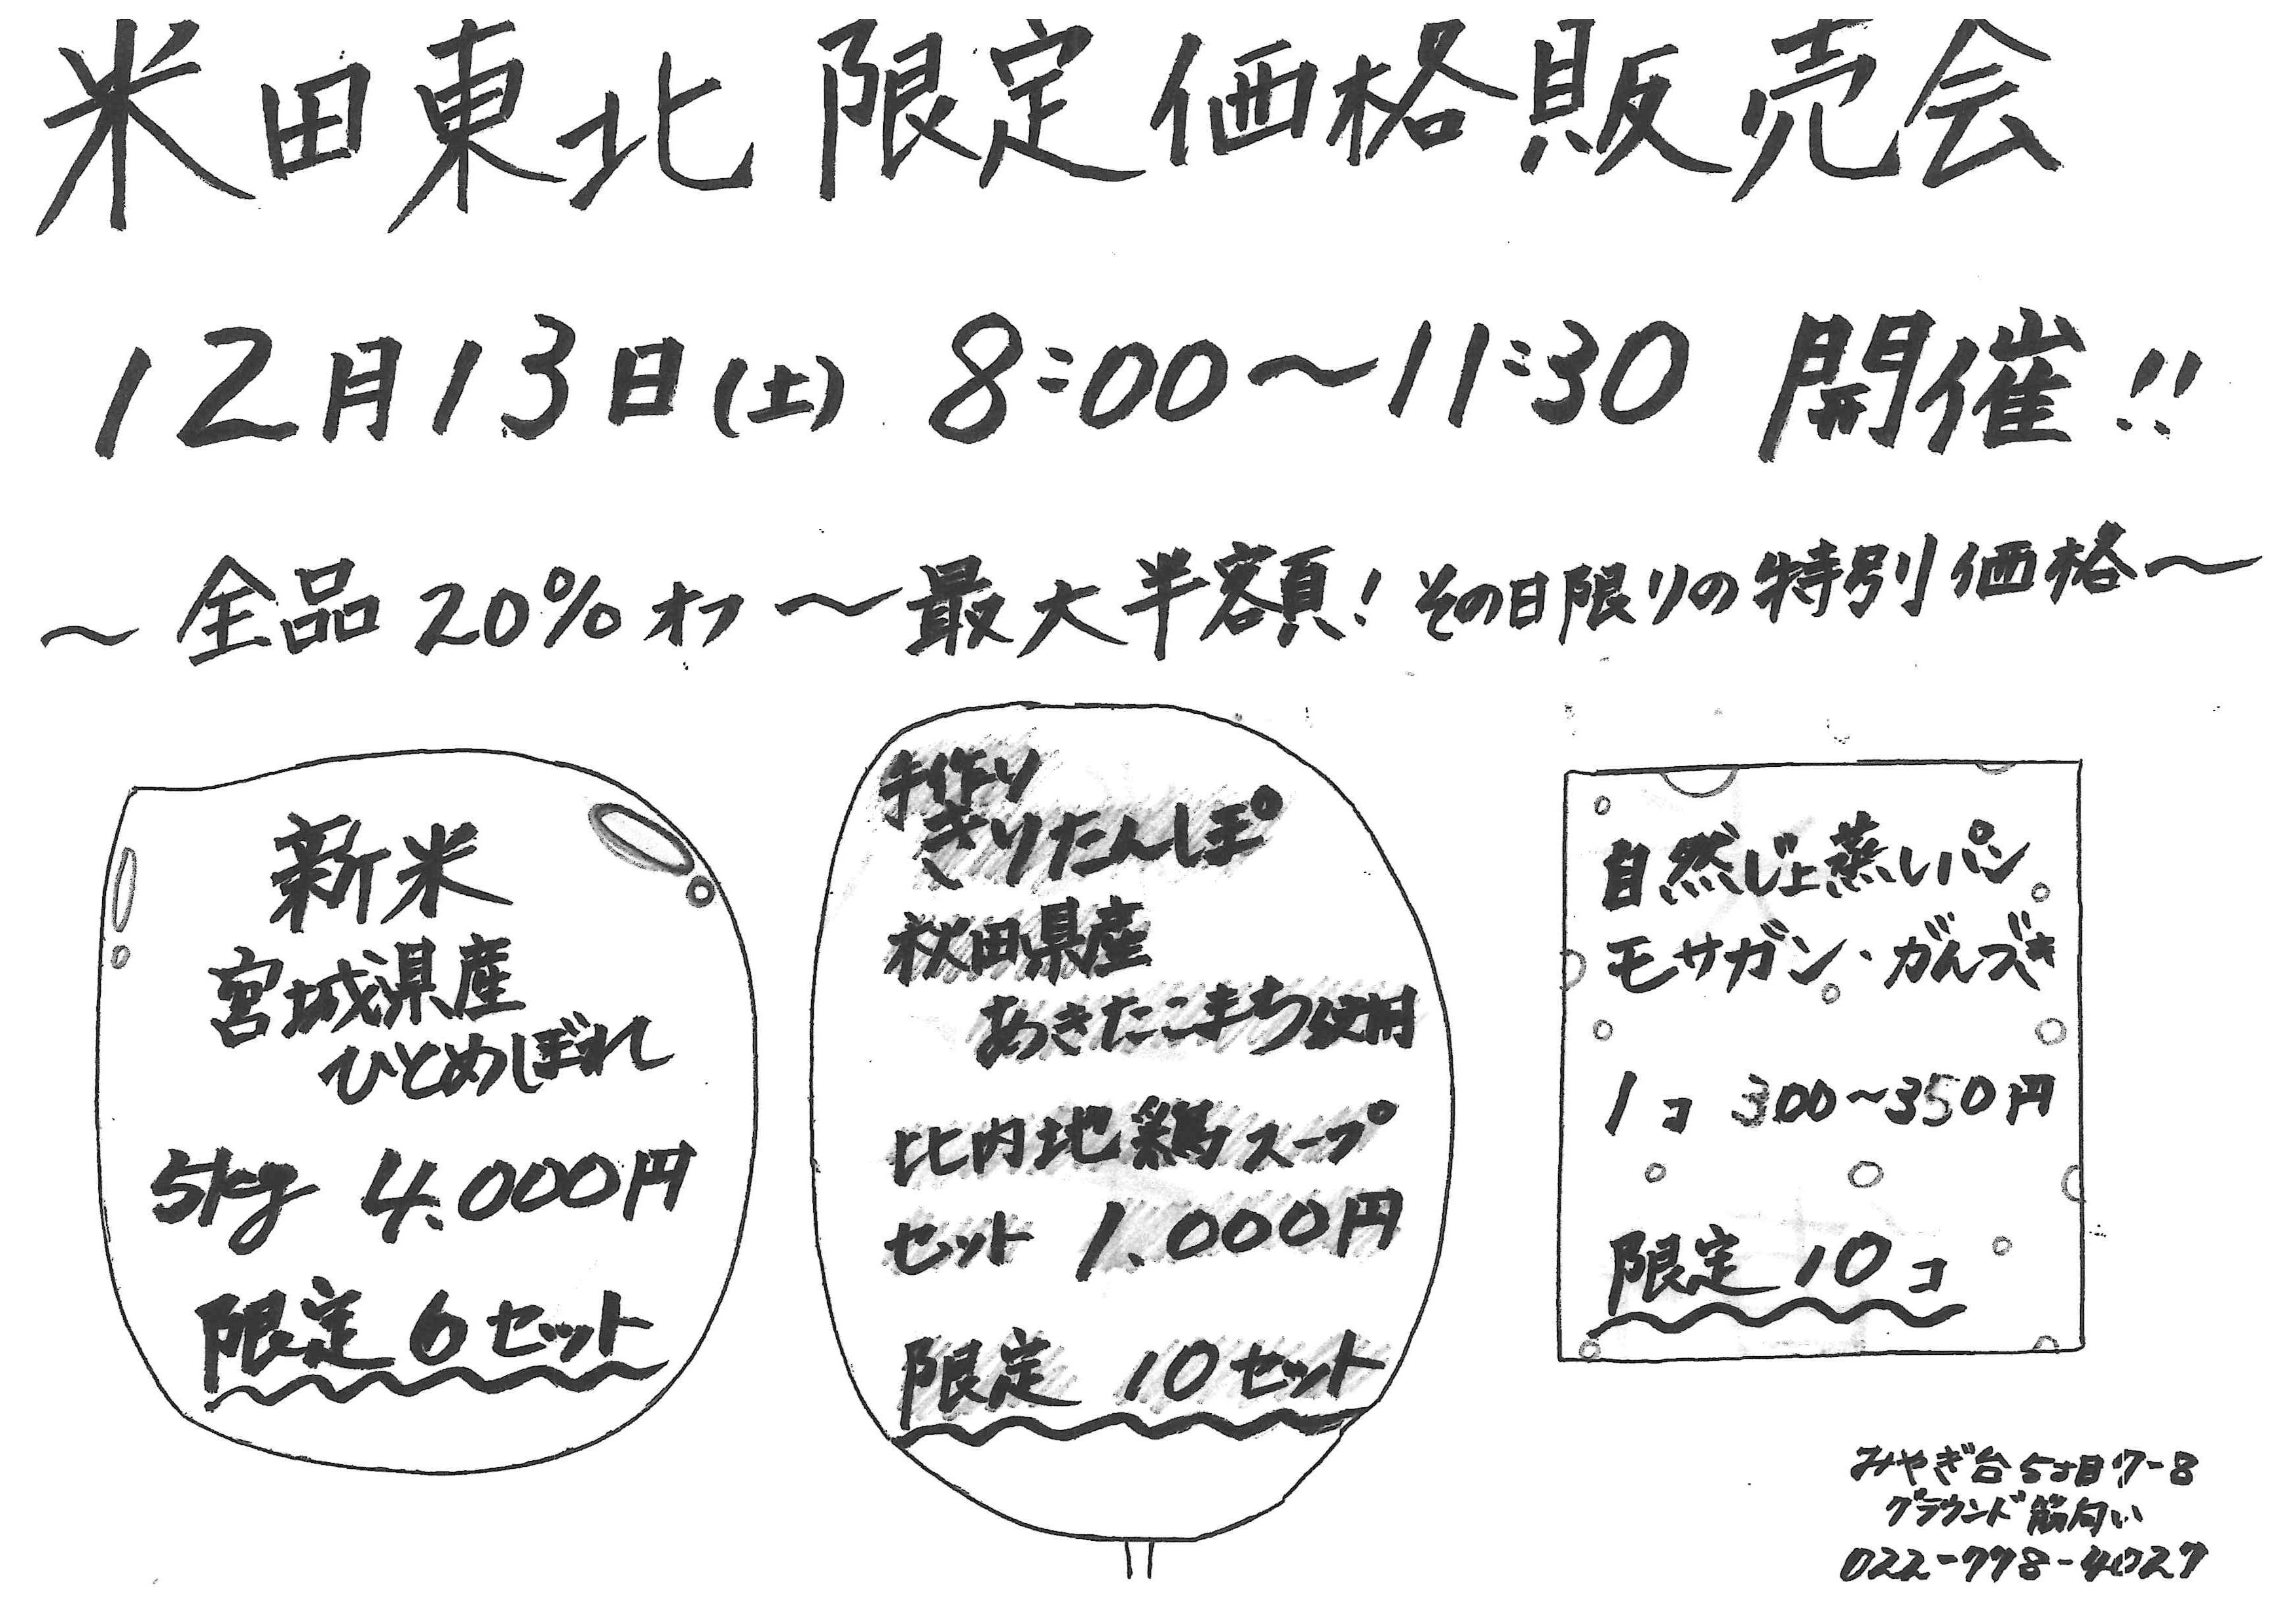 米田東北 限定価格販売会
12月13日(土) 8:00〜11:30 開催!!
〜全品20%オフ〜最大半額!その日限りの特別価格〜
新米
宮城県産
ひとめぼれ
5kg 4.000円
限定 6セット
手作り
きりたんぽ
秋田県産
あきたこまち使用
比内地鶏スープ
セット 1.000円
限定 10セット
自然じょ蒸しパン
モサガン・がんづき
1コ 300〜350円
限定 10コ
みやぎ台5丁目7-8
グラウンド筋向い
022-778-4027